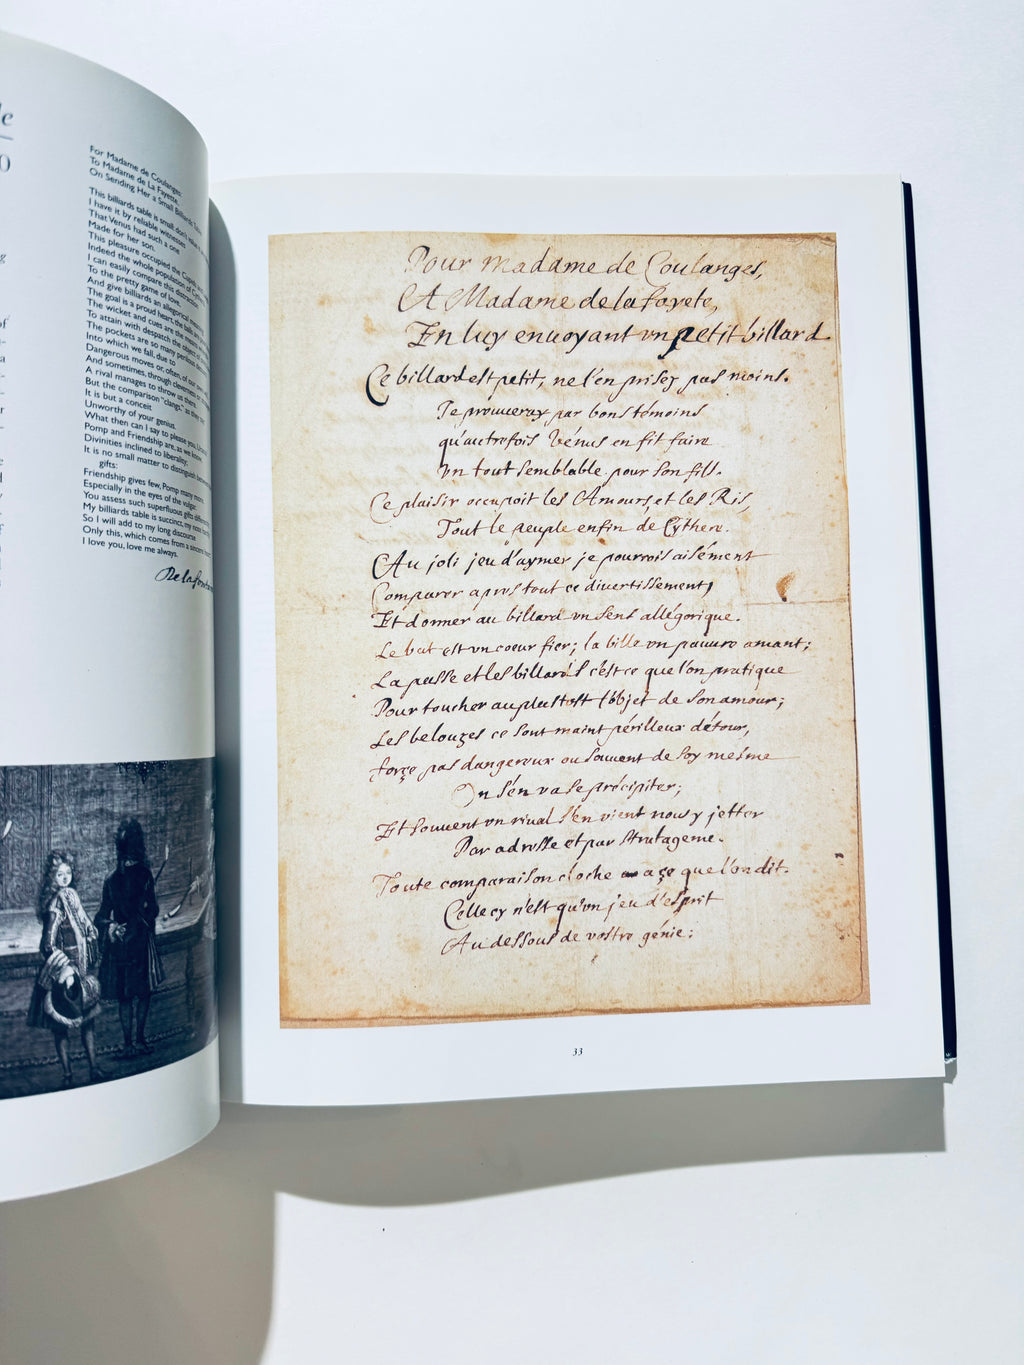 For Madame de Coulanges:
To Madame de La Fayette,
On Sending Her a Small Billiards Table
This billiards table is small; don't value it
I have it by reliable witnesses
That Venus had such a one
Made for her son.
This pleasure occupied the Cupids
Indeed the whole population of
I can easily compare this distraction
To the pretty game of love,
And give billiards an allegorical
The goal is a proud heart, the ball
The wicket and cues are the means
To attain with despatch the object of
The pockets are so many perilous
Into which we fall, due to
Dangerous moves or, often, of our own
And sometimes, through cleverness
A rival manages to throw us there.
But the comparison "clangs," as they say
It is but a conceit
Unworthy of your genius.
What then can I say to please you,
Pomp and Friendship are, as we know
Divinities inclined to liberality;
It is no small matter to distinguish between
gifts:
Friendship gives few, Pomp many more,
Especially in the eyes of the vulgar.
You assess such superfluous gifts differently
My billiards table is succinct, my
So I will add to my long discourse
Only this, which comes from a sincere heart:
I love you, love me always.
De la fontaine
Pour madame de Coulanges,
A Madame de la fayete,
En luy enuoyant vn petit billard
Ce billard est petit, ne l'en prisez pas moins.
Je prouueray par bons témoins
qu'autrefois Vénus en fit faire
vn tout semblable pour son fils.
Ce plaisir occupoit les Amours, et les Ris,
Tout le peuple enfin de Cythere.
Au joli jeu d'aymer je pourrois aisément
Comparer apres tout ce divertissement,
Et donner au billard vn sens allégorique.
Le but est vn coeur fier; la bille vn pauure amant;
La passe et les billards c'est ce que l'on pratique
Pour toucher au plustost l'objet de son amour;
Les belouzes ce sont maint périlleux détour,
force pas dangereux ou souuent de soy mesme
On s'en va se précipiter;
Et souuent vn riual s'en vient nous y jetter
Par adresse et par stratageme.
Toute comparaison cloche a ce que l'on dit.
Celle cy n'est qu'vn jeu d'esprit
Au dessous de vostre génie:
33